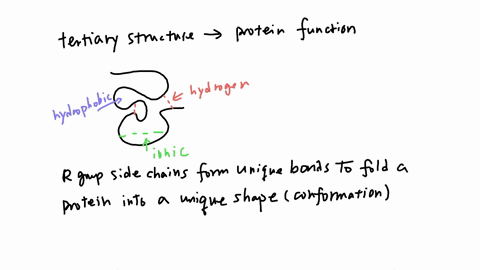 tertiary structure → protein function
hydrophobic
hydrogen
ionic
R group side chains form unique bonds to fold a
protein into a unique shape (conformation)